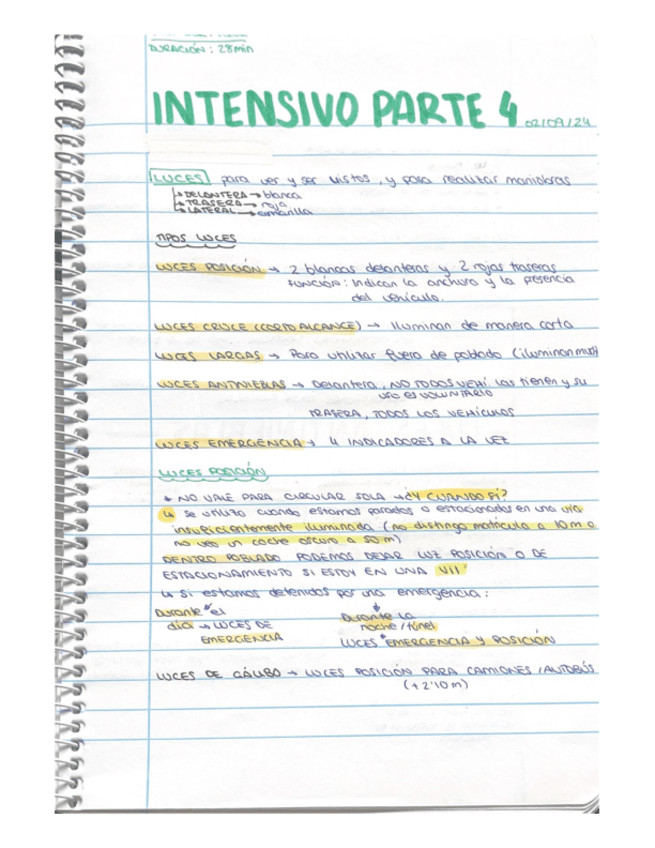 DURACIÓN: 28min
INTENSIVO PARTE 4 02/09/24
LUCES para ver y ser vistos, y para realizar maniobras
↳ DELANTERA → blanca
↳ TRASERA → roja
↳ LATERAL → amarilla
TIPOS LUCES
LUCES POSICIÓN → 2 blancas delanteras y 2 rojas traseras
FUNCIÓN: Indican la anchura y la presencia
del vehículo.
LUCES CRUCE (CORTO ALCANCE) → Iluminan de manera corta
LUCES LARGAS → Para utilizar fuera de poblado (iluminan
LUCES ANTINIEBLAS → Delantera, NO TODOS VEHÍ. las tienen y su
USO ES VOLUNTARIO
TRASERA, TODOS LOS VEHÍCULOS
LUCES EMERGENCIA → 4 INDICADORES A LA VEZ
LUCES POSICIÓN
* NO VALE PARA CIRCULAR SOLA → ¿Y CUANDO SÍ?
↳ se utiliza cuando estamos parados o estacionados en una vía
insuficientemente iluminada (no distingo matrícula a 10m o
no veo un coche oscuro a 50m)
DENTRO POBLADO PODEMOS DEJAR LUZ POSICIÓN O DE
ESTACIONAMIENTO SI ESTOY EN UNA VII
↳ Si estamos detenidos por una emergencia:
Durante el
día → LUCES DE
EMERGENCIA
Durante la
noche/túnel
LUCES EMERGENCIA Y POSICIÓN
LUCES DE GÁLIBO → LUCES POSICIÓN PARA CAMIONES/AUTOBÚS
(+2'10m)